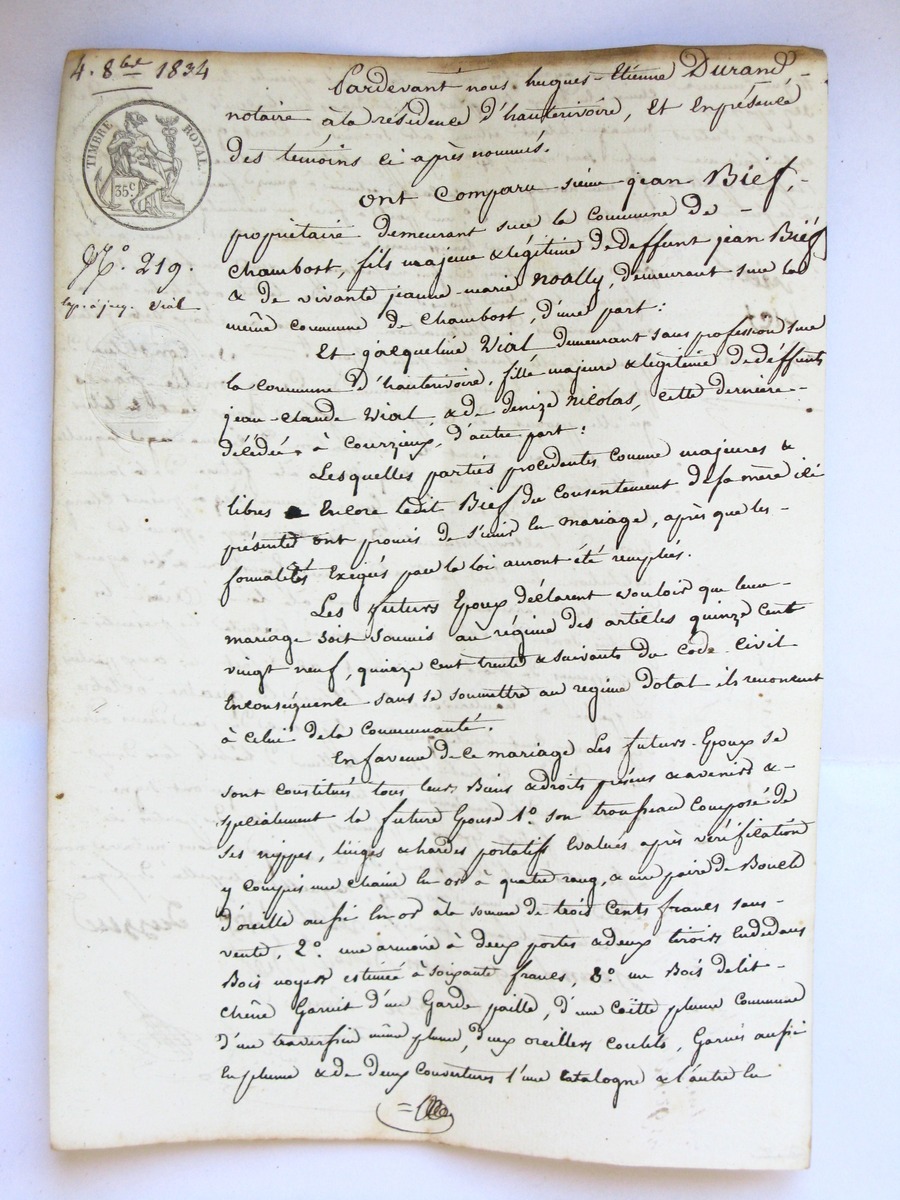 4. 8bre 1834
TIMBRE ROYAL.
35 c
N.° 219.
Exp. à jacq. Vial
Pardevant nous hugues-Etienne Durand,
notaire à la résidence d'hauterivoire, et en présence
des témoins ci après nommés.
ont comparu sieur jean Bief,
propriétaire demeurant sur la commune de
chambost, fils majeur & légitime de deffunt jean Bief
& de vivante jeanne-marie noally, demeurant sur la
même commune de chambost, d'une part:
Et jacqueline Vial demeurant sans profession sur
la commune d'hauterivoire, fille majeure & légitime de déffunts
jean-claude Vial & de denize nicolas, cette dernière
décédée à Courzieux, d'autre part:
Lesquelles parties procédantes comme majeures &
libres Encore ledit Bief du consentement de sa mère ici
présente ont promis de s'unir en mariage, après que les
formalités Exigées par la loi auront été remplies.
Les futurs Epoux déclarent vouloir que leur
mariage soit soumis au régime des articles quinze cent
vingt neuf, quinze cent trente & suivants du code civil
Enconséquence sans se soumettre au regime dotal ils renoncent
à celui de la communauté.
En faveur de ce mariage Les futurs Epoux se
sont constitués tous leurs Biens & droits présens & avenirs &
spécialement la future Epouse 1° son trousseau composé de
ses nippes, linges & hardes portatifs Evalués après vérification
y compris une chaine en or à quatre rang, & une paire de Boucle
d'oreille aussi en or à la somme de trois cents francs sans
vente, 2° une armoire à deux portes & deux tiroirs Endedans
Bois noyer estimée à soixante francs, 3° un Bois de lit
chêne Garnit d'un Garde paille, d'une coëtte plume commune
d'un traversin même plume, deux oreillers coutils, Garnis aussi
en plume & de deux couvertures l'une catalogne & l'autre en